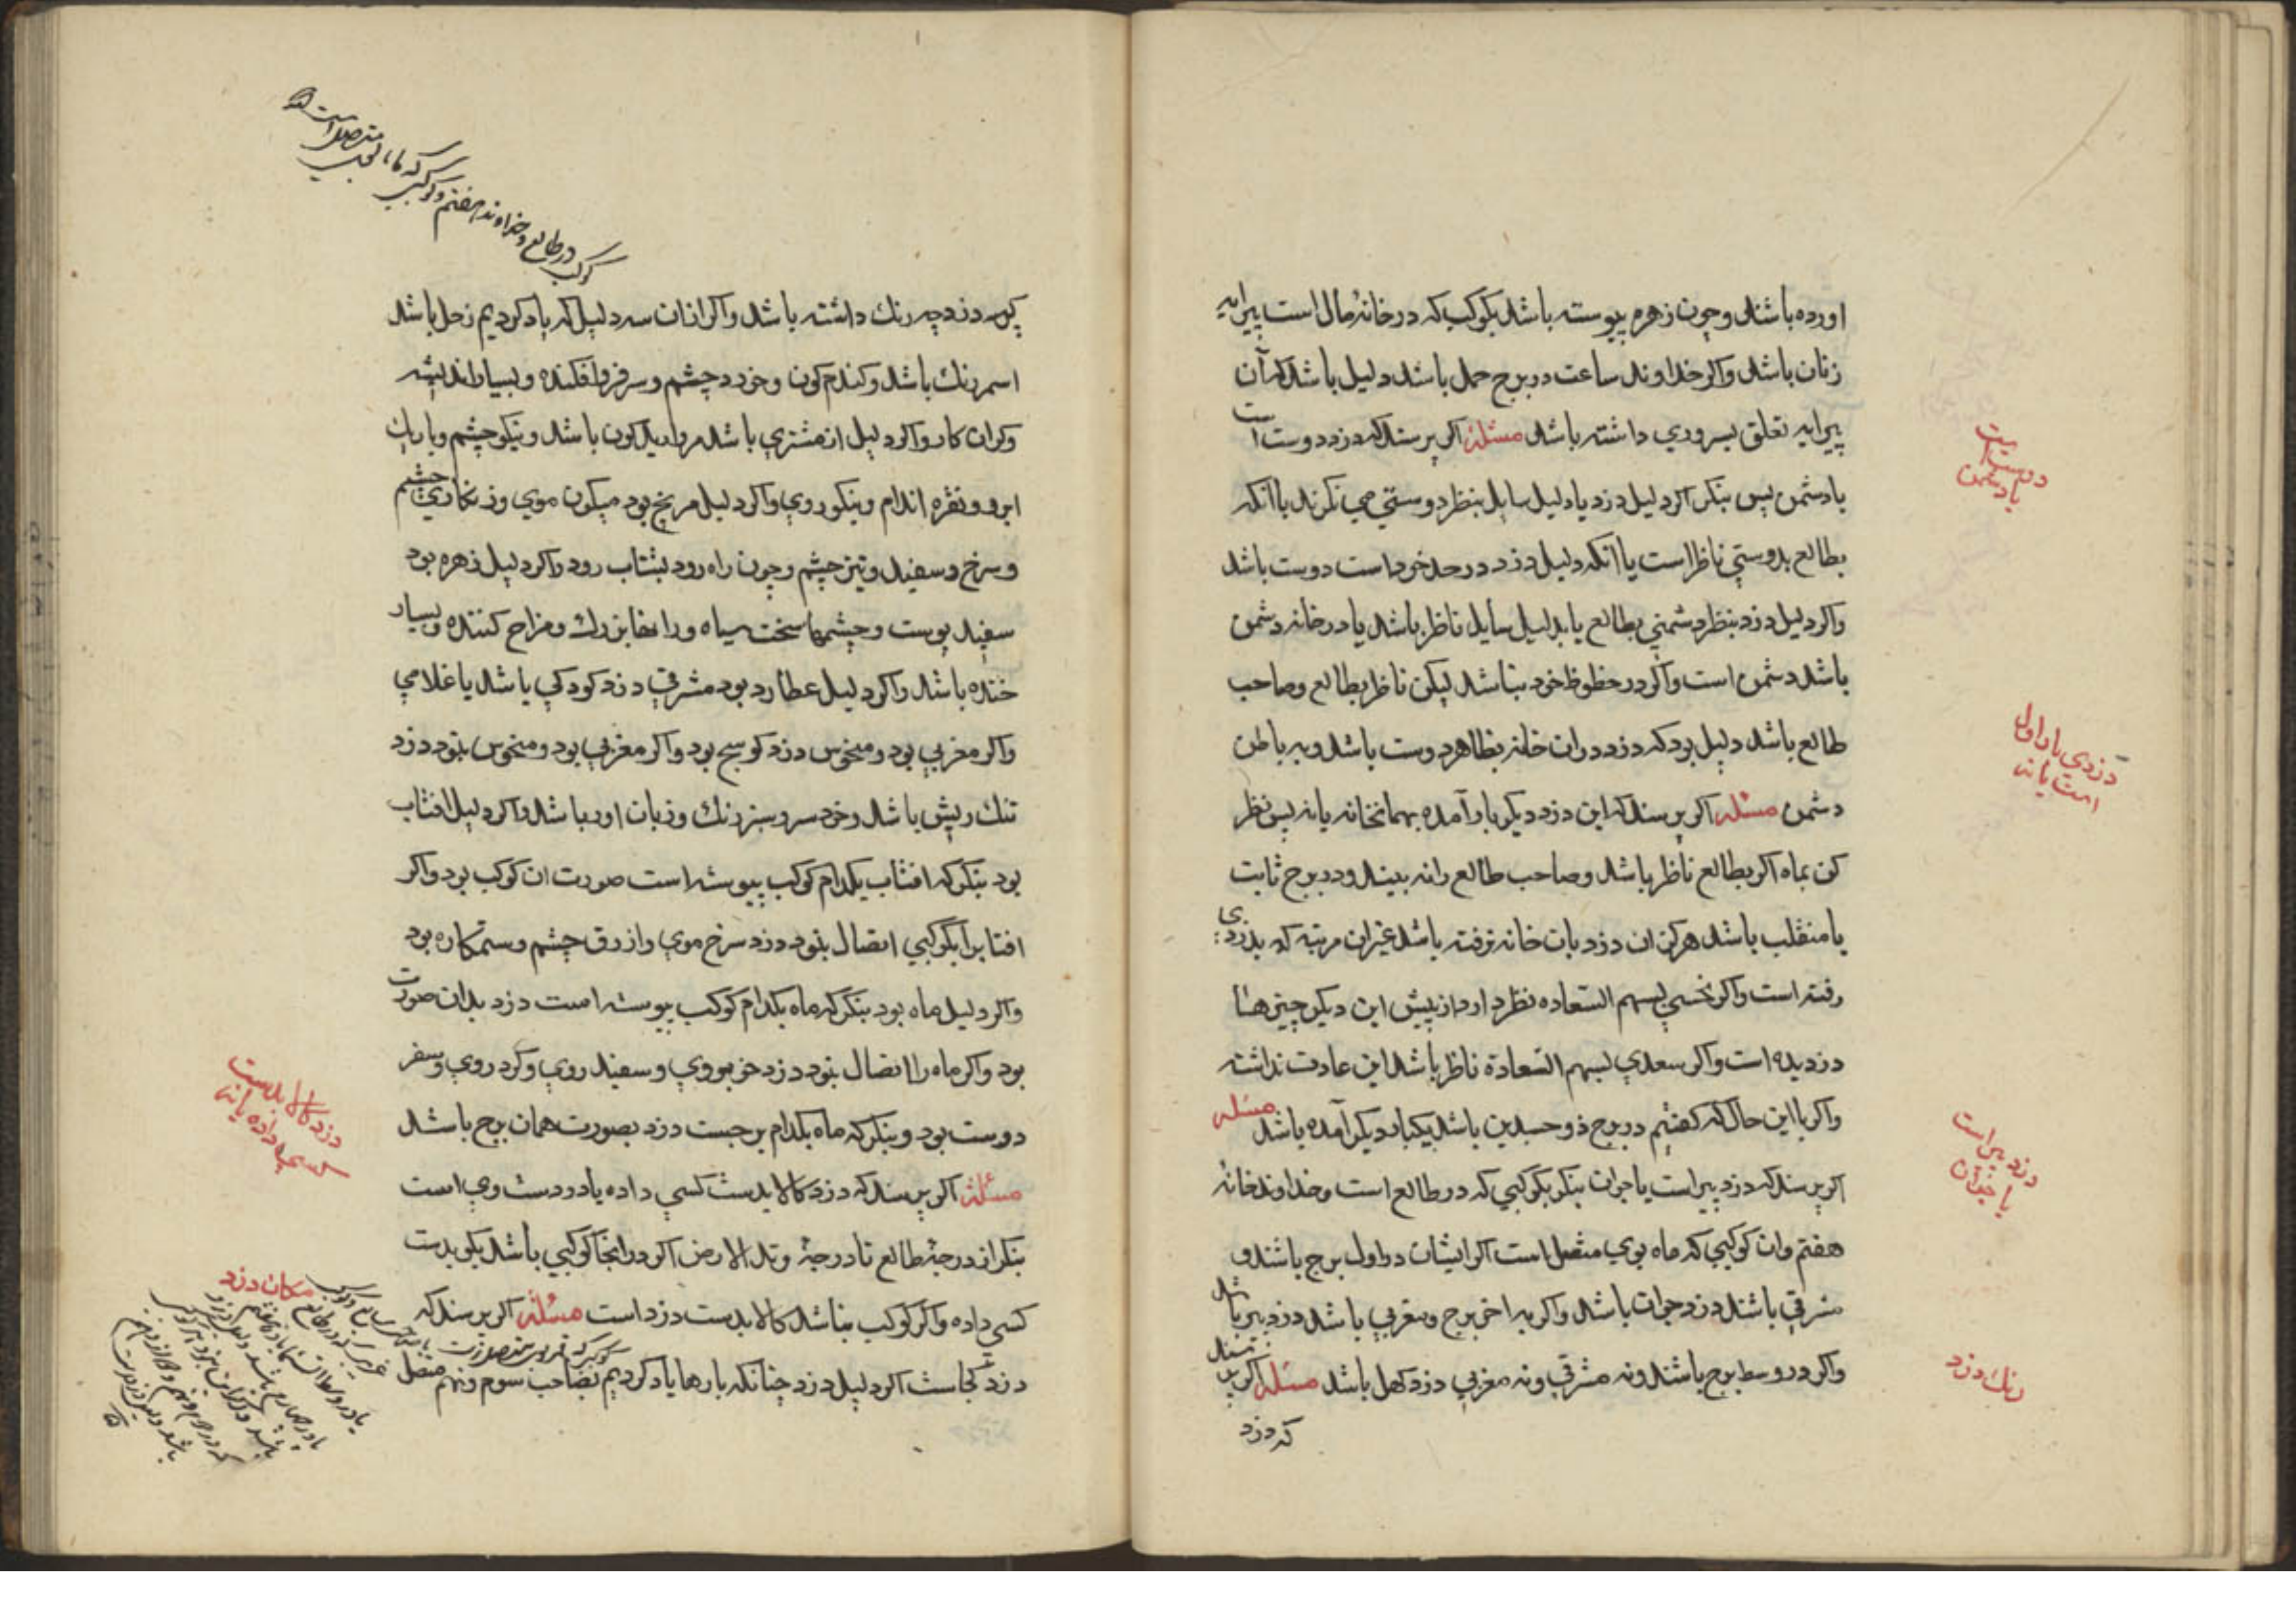 اورده باشند و چون زهره پیوسته باشد بکوکب که در خانهٔ مال است پیرایه
زنان باشد و اکر خداوند ساعت در برج حمل باشد دلیل باشد که آن
پیرایه تعلق بسروری داشته باشد مسئلهٔ اکر پرسند که دزد دوست است
یا دشمن پس بنکر اکر دلیل دزد یا دلیل سایل بنظر دوستی می نکرند یا انکه
بطالع بدوستی ناظر است یا انکه دلیل دزد در حد خود است دوست باشد
واکر دلیل دزد بنظر دشمنی بطالع یا بدلیل سایل ناظر باشد یا در خانه دشمن
باشد دشمن است واکر در حظوظ خود نباشد لیکن ناظر بطالع وصاحب
طالع باشد دلیل بود که دزد دران خانه بظاهر دوست باشد وبه باطن
دشمن مسئله اکر پرسند که این دزد دیکر بار آمده بهمانخانه یا نه پس نظر
کن بماه اکر بطالع ناظر باشد وصاحب طالع را نه بیند و در برج ثابت
یا منقلب باشد هرکز ان دزد بان خانه نرفته باشد غیر ان مرتبه که بدزدی
رفته است واکر نحسی لسهم السعاده نظر دارد از پیش این دیکر چیزها
دزدیده است واکر سعدی لسهم السعادة ناظر باشد این عادت نداشته
واکر با این حال که کفتیم در برج ذو جسدین باشد یکبار دیکر آمده باشد مسئله
اکر پرسند که دزد پیر است یا جوان بنکر بکوکبی که در طالع است وخداوند خانهٔ
هفتم وان کوکبی که ماه بوی متصل است اکر ایشان در اول برج باشند و
مشرقی باشند دزد جوان باشد واکر به اخر برج ومغربی باشد دزد پیر باشد
واکر در وسط برج باشند ونه مشرقی ونه مغربی دزد کهل باشد مسئله اکر پرسند
که دزد
دوست است
یا دشمن
دزدی بار اول
است یا نه
دزد پیر است
یا جوان
رنك دزد
کوکب در طالع وخداوند هفتم وکوکبی که ماه
متصل است
پرسد دزد چه رنك داشته باشد واکر ازان سه دلیل که یاد کردیم زحل باشد
اسمر رنك باشد وکندم کون وخورد چشم وسر فرو افکنده وبسیار اندیشه
وکران کار واکر دلیل از مشتری باشد مروارید کون باشد ونیکو چشم وباریك
ابرو ونقره اندام ونیکو روی واکر دلیل مریخ بود میکون موی وزنکاری چشم
وسرخ وسفید وتیز چشم وچون راه رود بشتاب رود واکر دلیل زهره بود
سفید پوست وچشمها سخت سیاه ورانها بزرك ومزاح کننده وبسیار
خنده باشد واکر دلیل عطارد بود مشرقی دزد کودکی باشد یا غلامی
واکر مغربی بود ومنحوس دزد کوسج بود واکر مغربی بود ومنحوس نبود دزد
تنك ریش باشد وخرد سر وسبز رنك وزبان اور باشد واکر دلیل افتاب
بود بنکر که افتاب بکدام کوکب پیوسته است صورت ان کوکب بود واکر
افتاب را بکوکبی اتصال نبود دزد سرخ موی وازرق چشم وستمکاره بود
واکر دلیل ماه بود بنکر که ماه بکدام کوکب پیوسته است دزد بدان صورت
بود واکر ماه را اتصال نبود دزد خوبروی وسفید روی وکرد روی وسفر
دوست بود وبنکر که ماه بکدام برجست دزد بصورت همان برج باشد
مسئلهٔ اکر پرسند که دزد کالا بدست کسی داده یا در دست وی است
بنکر از درجهٔ طالع تا درجهٔ وتد الارض اکر در انجا کوکبی باشد بکو بدست
کسی داده واکر کوکب نباشد کالا بدست دزد است مسئلهٔ اکر پرسند که
دزد کجاست اکر دلیل دزد چنانکه بارها یاد کردیم بصاحب سوم ونهم متصل
دزد کالا بدست
کسی داده یا نه
مکان دزد